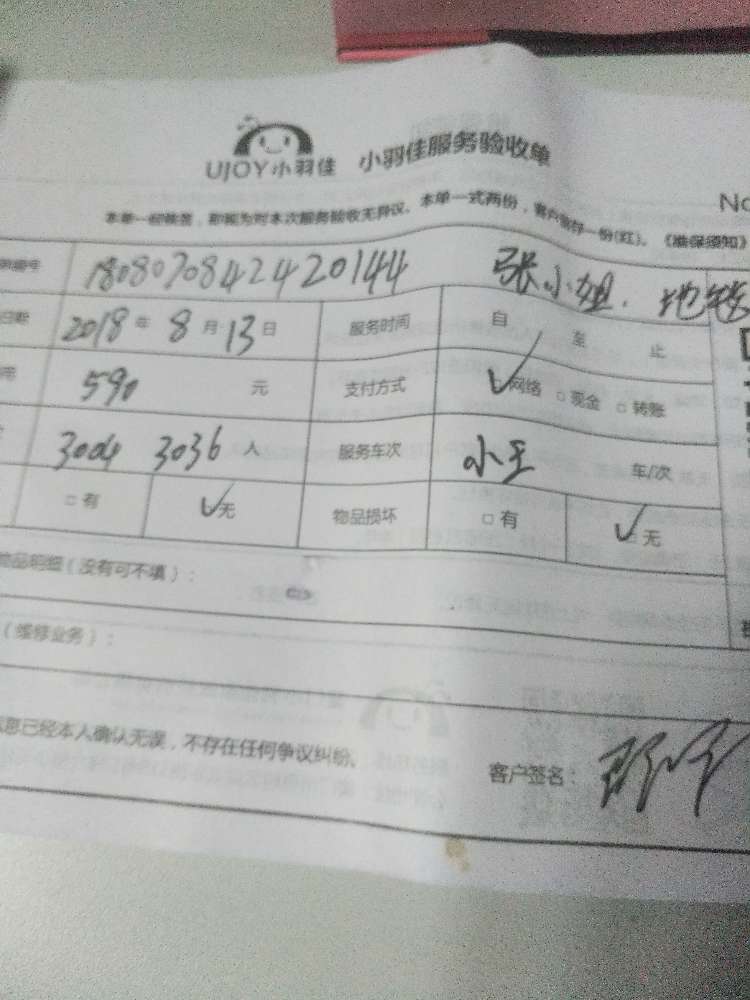 UJOY小羽佳 小羽佳服务验收单
No
本单一经签署，即视为对本次服务验收无异议。本单一式两份，客户留存一份(红)。《维保须知》
编号 180807084242420144 张小姐. 地
日期 2018年8月13日 服务时间 自 至 止
590 元 支付方式 ✓网络 □现金 □转账
3004 3036 人 服务车次 小王 车/次
□有 ✓无 物品损坏 □有 ✓无
物品明细（没有可不填）：
（维修业务）：
信息已经本人确认无误，不存在任何争议纠纷。
客户签名：